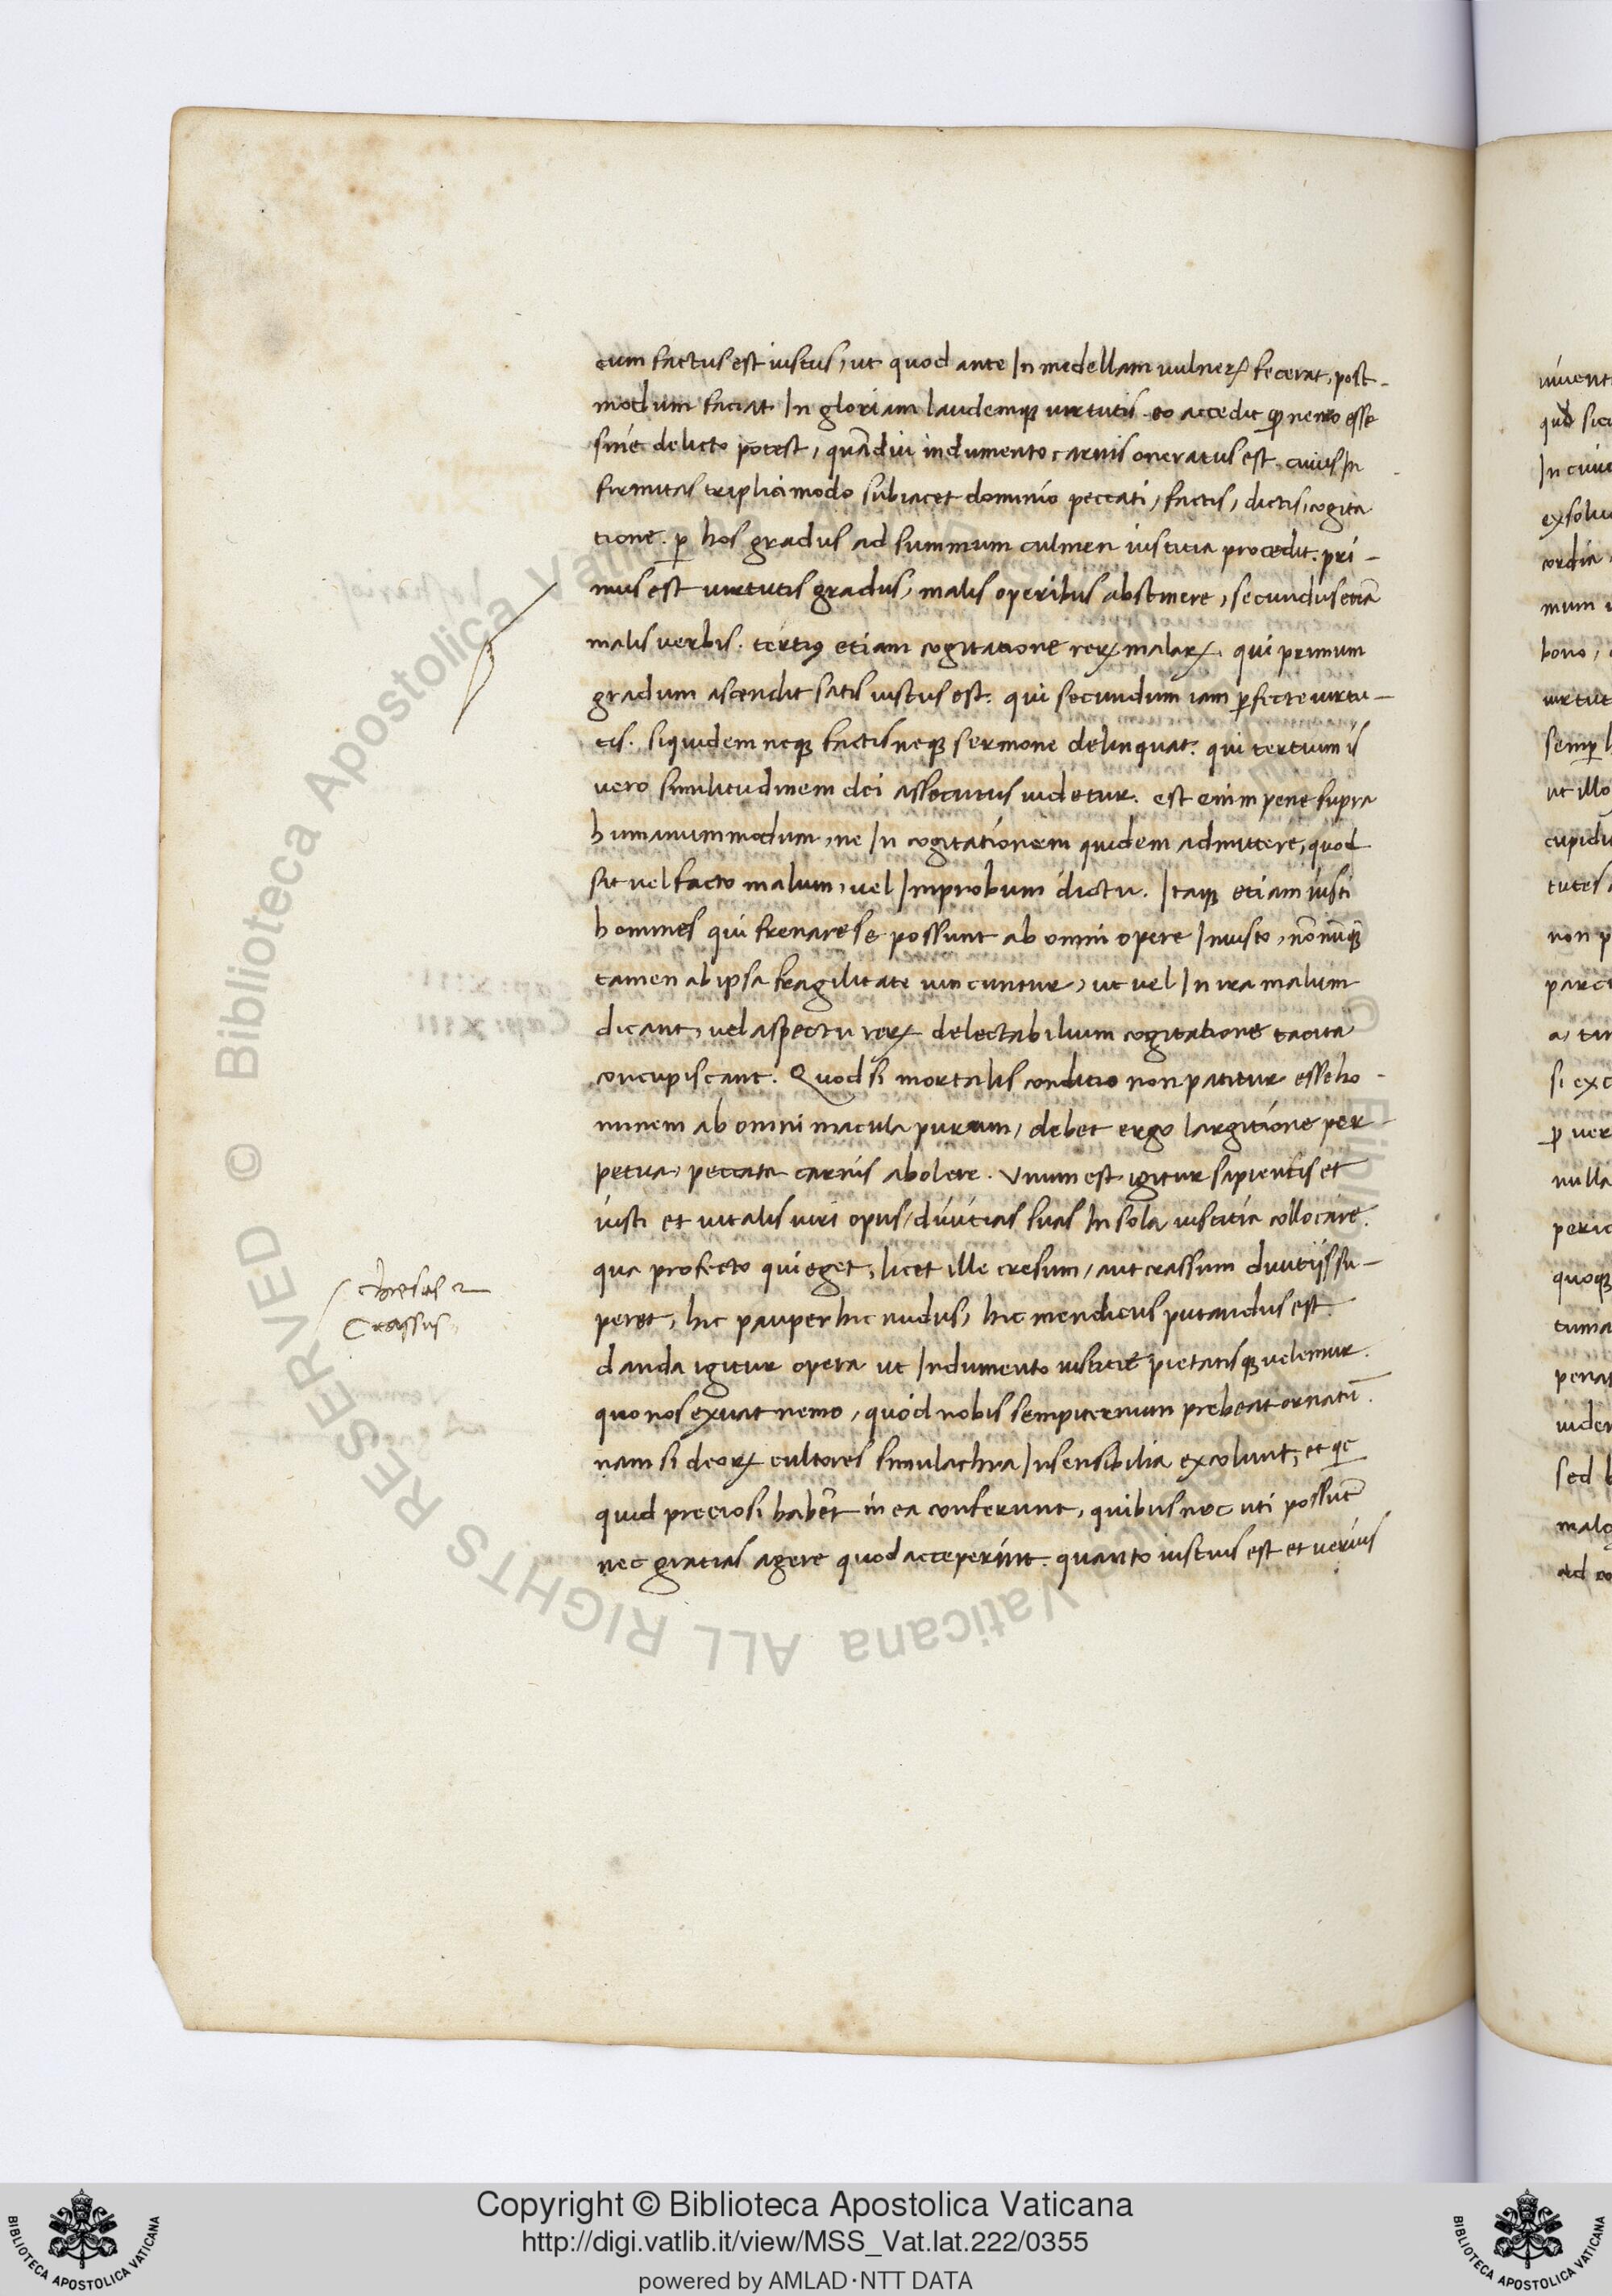 cum factus est iustus, ut quod ante In medellam uulneꝝ fecerat, post-
modum faciat In gloriam laudemqꝫ uirtutis. eo accedit ꝙ nemo esse
sine delicto potest, quādiu indumento carnis oneratus est. cuius In
firmitas triplici modo subiacet dominio peccati, factis, dictis, cogita
tione. ꝑ hos gradus ad summum culmen iustitia procedit. pri-
mus est uirtutis gradus, malis operibus abstinere, secundus etiā
malis uerbis. tertiꝰ etiam cogitatione reꝝ malaꝝ. qui primum
gradum ascendit satis iustus est. qui secundum iam ꝑfecte uirtu-
tis. siquidem neqꝫ factis neqꝫ sermone delinquat. qui tertium is
uero similitudinem dei assecutus uidetur. est enim pene supra
humanum modum, ne In cogitationem quidem admittere, quod
sit uel facto malum, uel Improbum dictu. Itaqꝫ etiam iusti
homines qui frenare se possunt ab omni opere Iniusto, nōnūqꝫ
tamen ab ipsa fragilitate uincuntur, ut uel In ira malum
dicant, uel aspectu reꝝ delectabilium cogitatione tacita
concupiscant. Quod si mortalis conditio non patitur esse ho-
minem ab omni macula purum, debet ergo largitione per-
petua, peccata carnis abolere. Vnum est igitur sapientis et
iusti et uitalis uiri opus, diuitias suas In sola iustitia collocare.
qua profecto qui eget, licet ille cresum, aut crassum diuitiis su-
peret, hic pauper hic nudus, hic mendicus putandus est.
danda igitur opera ut Indumento iustitie pietatisqꝫ uelemur.
quo nos exuat nemo, quod nobis sempiternum prebeat ornatū.
nam si deoꝝ cultores simulachra Insensibilia excolunt, et qc
quid preciosi habēt in ea conferunt, quibus nec uti possūt
nec gratias agere quod acceperint. quanto iustius est et uerius
Crassus
Copyright © Biblioteca Apostolica Vaticana
http://digi.vatlib.it/view/MSS_Vat.lat.222/0355
powered by AMLAD·NTT DATA
BIBLIOTECA APOSTOLICA VATICANA
BIBLIOTECA APOSTOLICA VATICANA